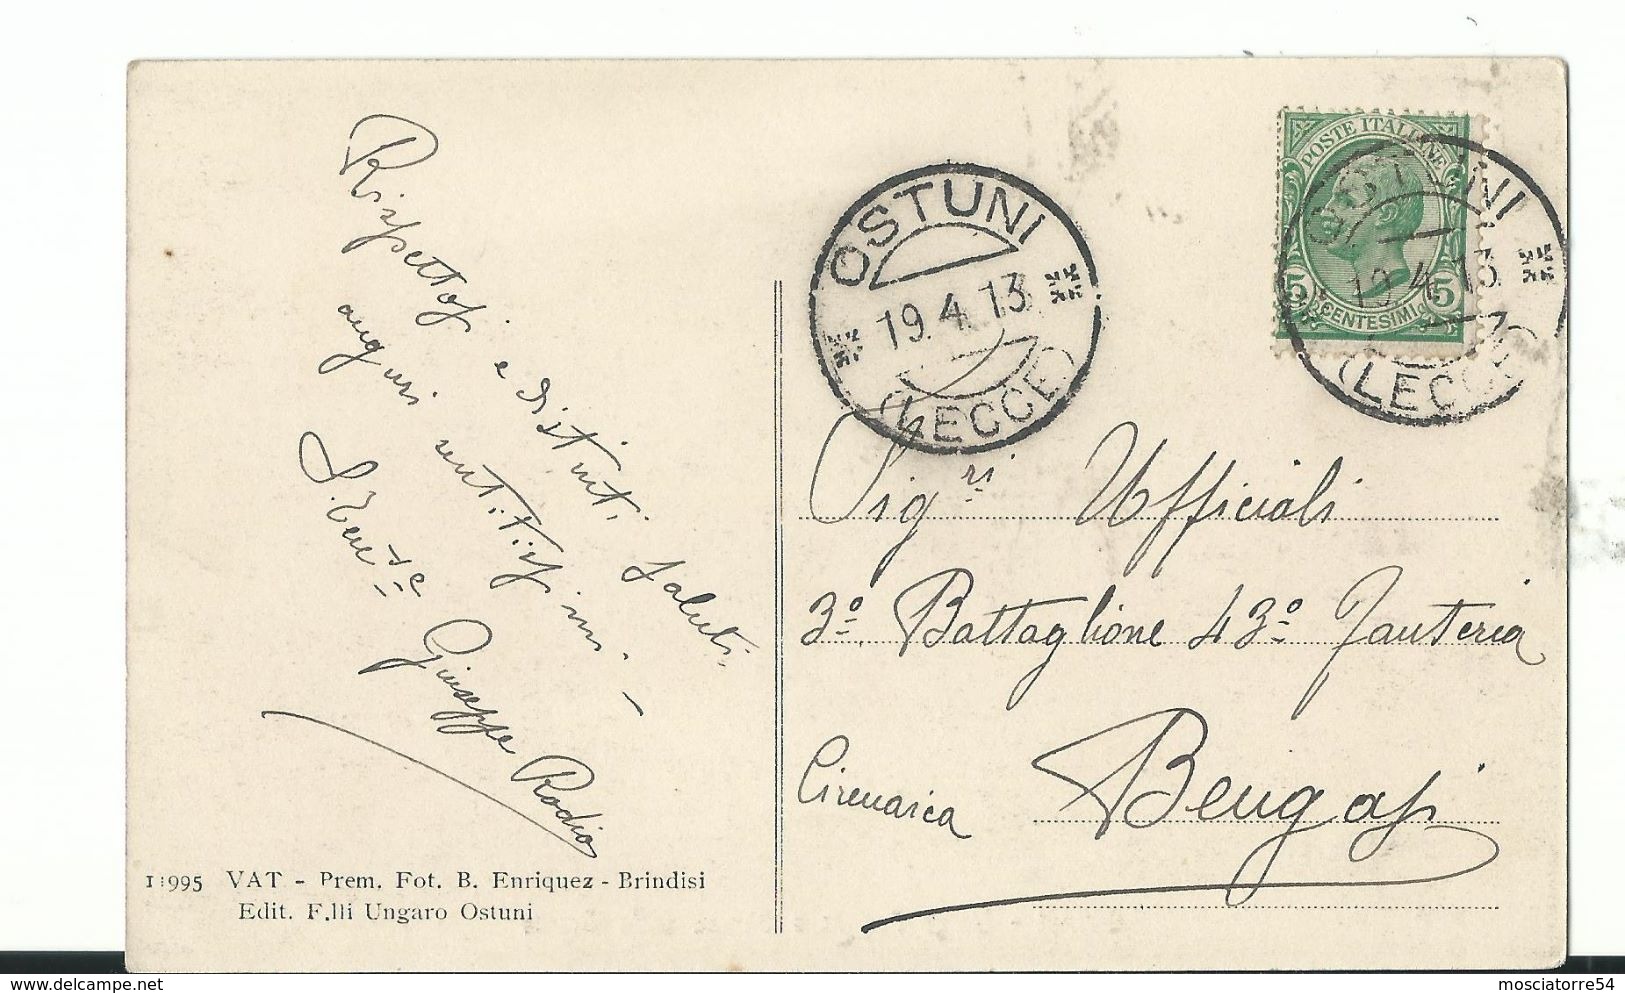 Rispettosi e distinti saluti
auguri sentitissimi -
S. Ten.te Giuseppe Rodio
11995 VAT - Prem. Fot. B. Enriquez - Brindisi
Edit. F.lli Ungaro Ostuni
OSTUNI
19.4.13
(LECCE)
POSTE ITALIANE
5 CENTESIMI 5
OSTUNI
19.4.13
(LECCE)
Sig.ri Ufficiali
3º Battaglione 43º Fanteria
Cirenaica Bengasi
delcampe.net
mosciatorre54